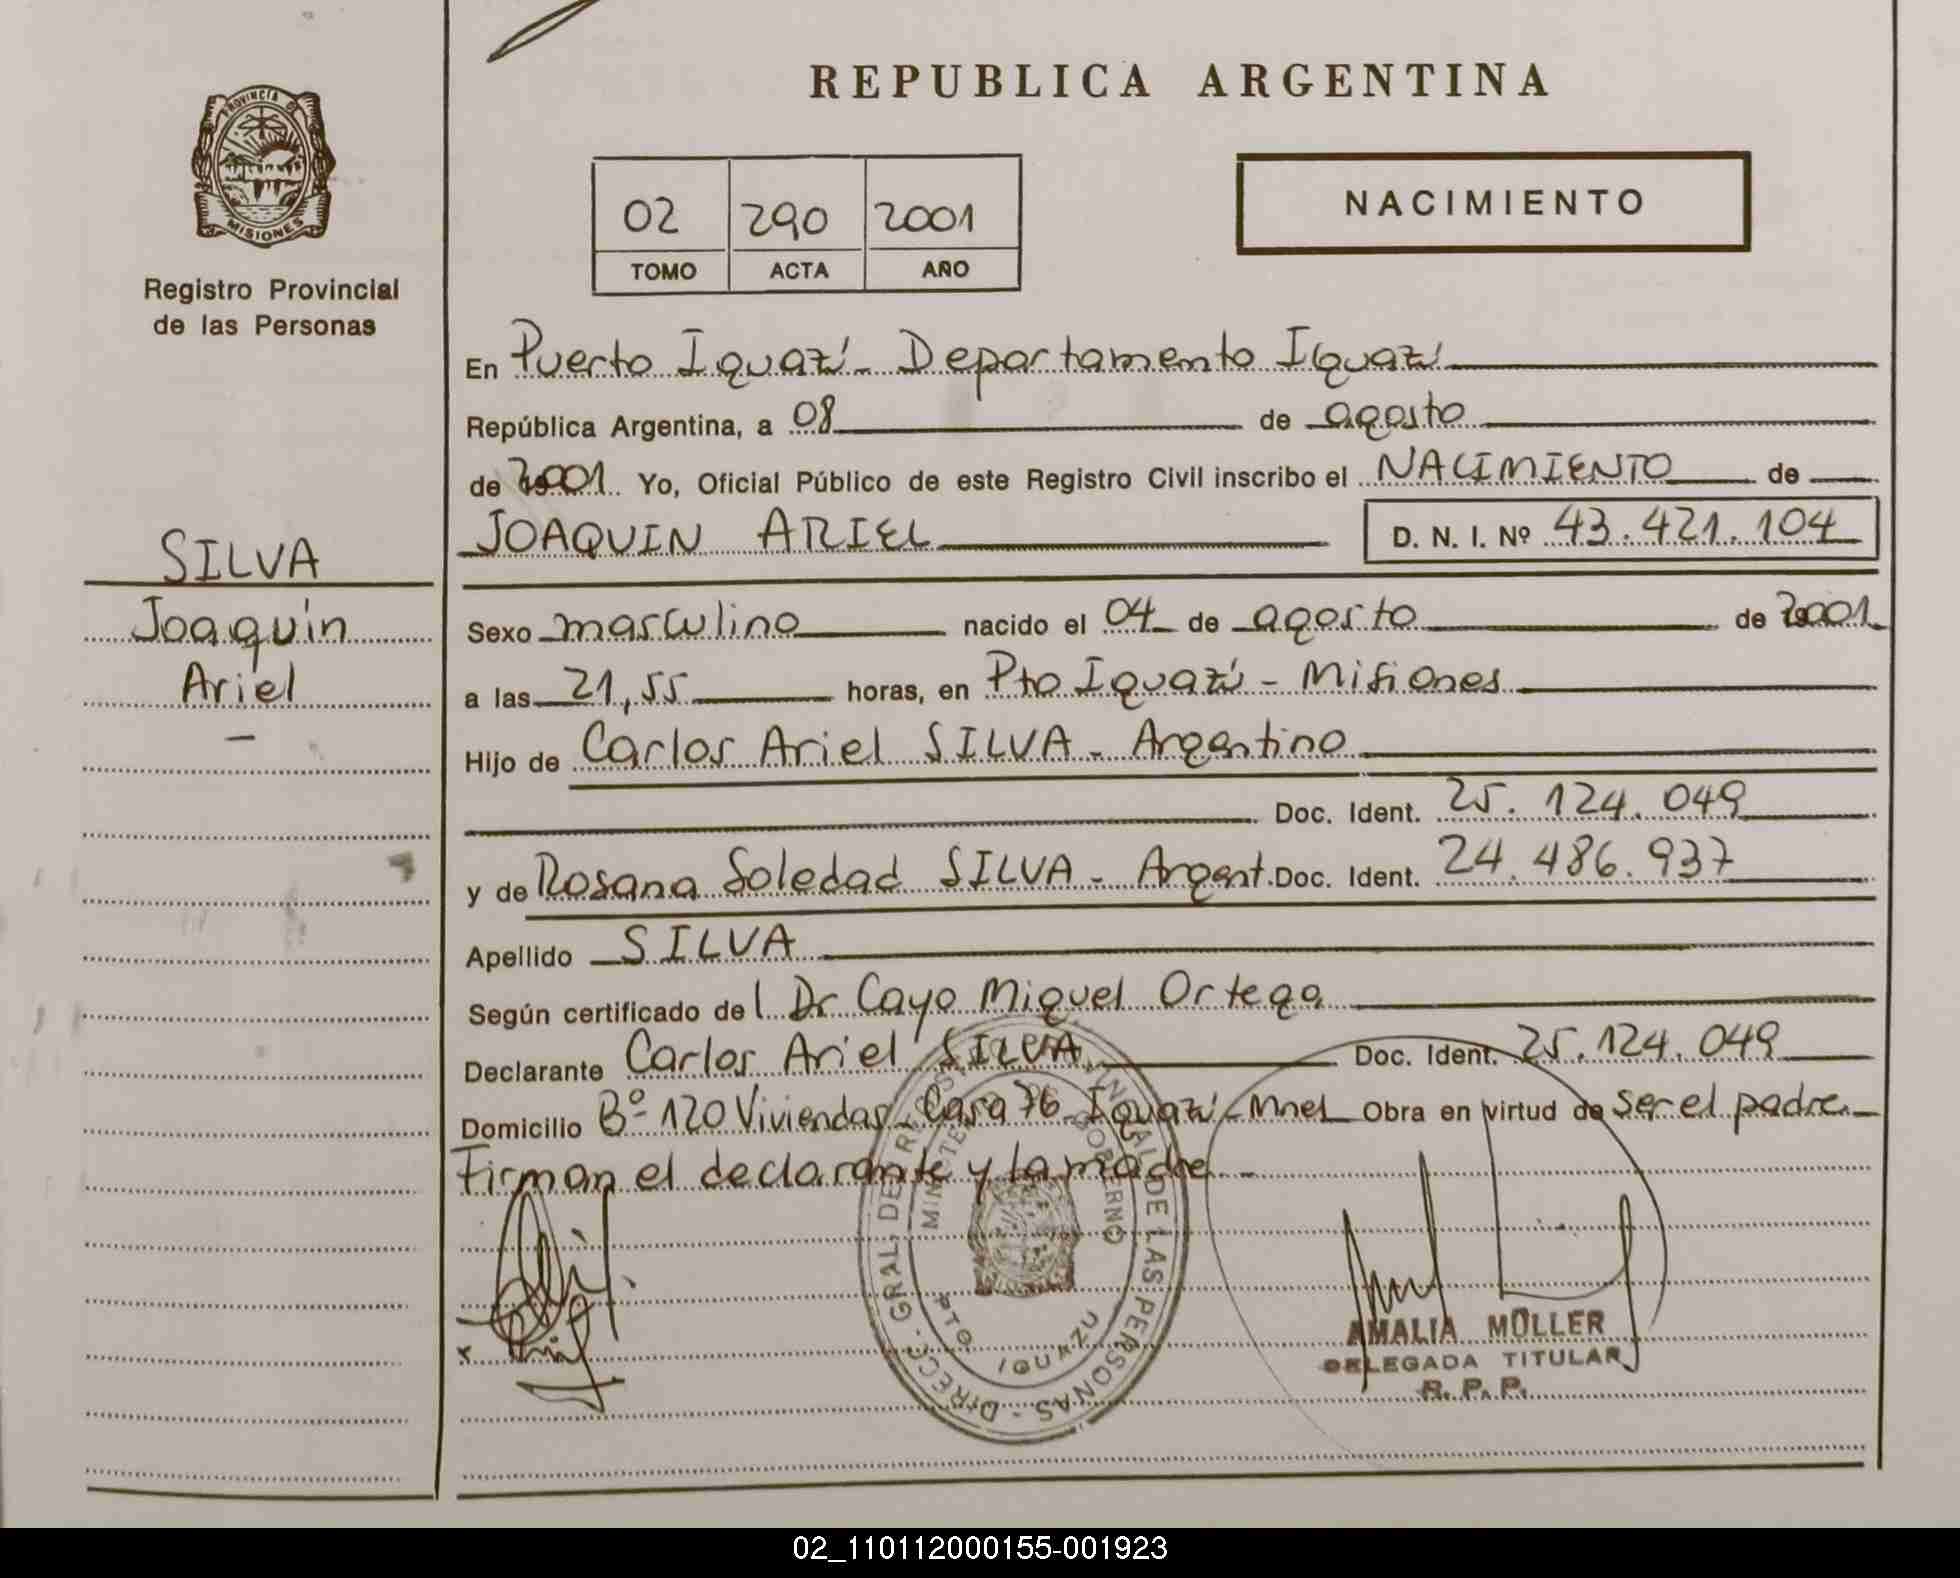 REPUBLICA ARGENTINA
PROVINCIA DE
MISIONES
Registro Provincial
de las Personas
02 290 2001
TOMO ACTA AÑO
NACIMIENTO
En Puerto Iguazú - Departamento Iguazú
República Argentina, a 08 de agosto
de 2001 Yo, Oficial Público de este Registro Civil inscribo el NACIMIENTO de
JOAQUIN ARIEL D. N. I. Nº 43.421.104
SILVA
Joaquín
Ariel
-
Sexo masculino nacido el 04 de agosto de 2001
a las 21,55 horas, en Pto Iguazú - Misiones
Hijo de Carlos Ariel SILVA - Argentino
Doc. Ident. 25.124.049
y de Rosana Soledad SILVA - Argent. Doc. Ident. 24.486.937
Apellido SILVA
Según certificado del Dr Cayo Miguel Ortega
Declarante Carlos Ariel SILVA Doc. Ident. 25.124.049
Domicilio Bº 120 Viviendas - Casa 76 Iguazú - Mnes Obra en virtud de ser el padre -
Firman el declarante y la madre -
DIRECC. GRAL. DE REGISTRO PROVINCIAL DE LAS PERSONAS -
MINISTERIO DE GOBIERNO
PTO. IGUAZU
AMALIA MÜLLER
DELEGADA TITULAR
R. P. P.
02_110112000155-001923